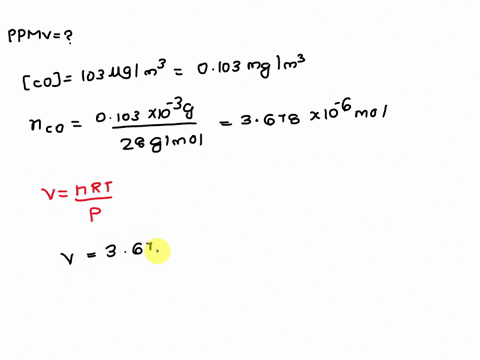 PPMV=?
[CO]= 103 μg/m³ = 0.103 mg/m³
nCO = 0.103 ×10⁻³g / 28 g/mol = 3.678 ×10⁻⁶ mol
V = nRT / P
V = 3.67